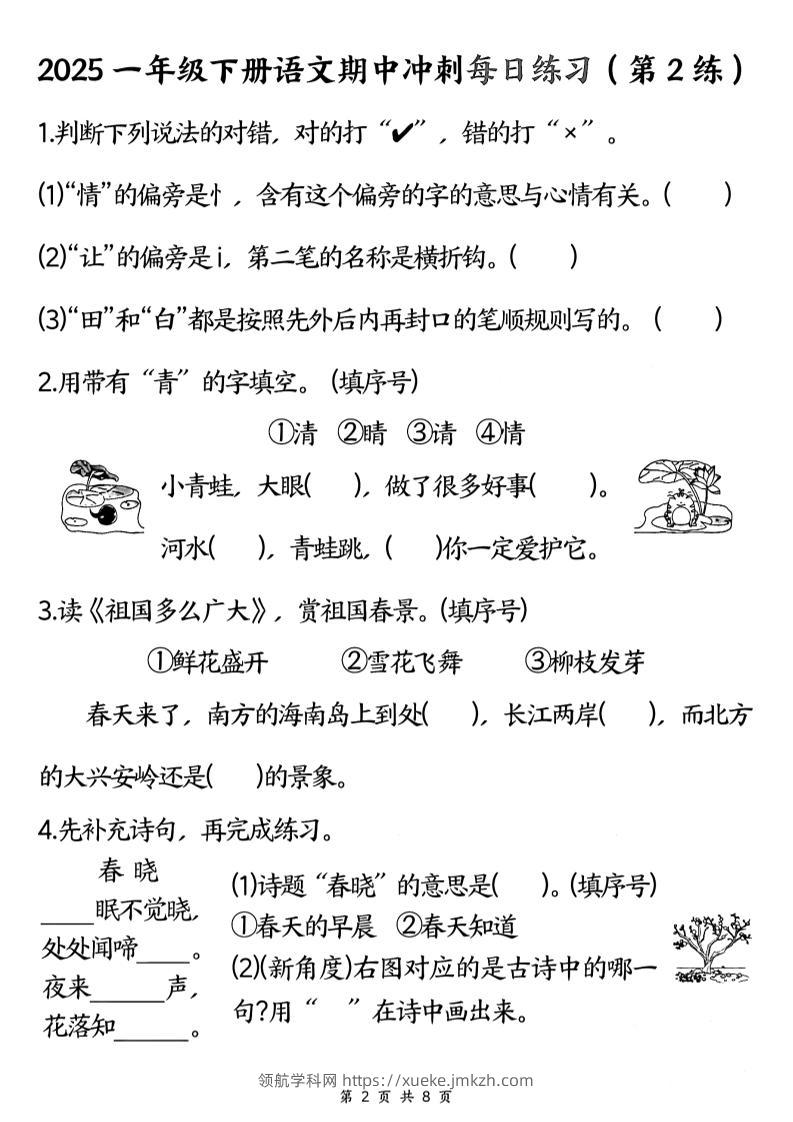 2025 一年级下册语文期中冲刺每日练习（第 2 练）
1.判断下列说法的对错，对的打“✔”，错的打“×”。
(1)“情”的偏旁是忄，含有这个偏旁的字的意思与心情有关。(    )
(2)“让”的偏旁是i，第二笔的名称是横折钩。(    )
(3)“田”和“白”都是按照先外后内再封口的笔顺规则写的。 (    )
2.用带有“青”的字填空。 (填序号)
①清 ②晴 ③请 ④情
小青蛙，大眼(    )，做了很多好事(    )。
河水(    )，青蛙跳，(    )你一定爱护它。
3.读《祖国多么广大》，赏祖国春景。(填序号)
①鲜花盛开 ②雪花飞舞 ③柳枝发芽
春天来了，南方的海南岛上到处(    )，长江两岸(    )，而北方
的大兴安岭还是(    )的景象。
4.先补充诗句，再完成练习。
春 晓
____眠不觉晓，
处处闻啼____。
夜来______声，
花落知______。
(1)诗题“春晓”的意思是(    )。(填序号)
①春天的早晨 ②春天知道
(2)(新角度)右图对应的是古诗中的哪一
句?用“    ”在诗中画出来。
领航学科网 https://xueke.jmkzh.com
第 2 页 共 8 页